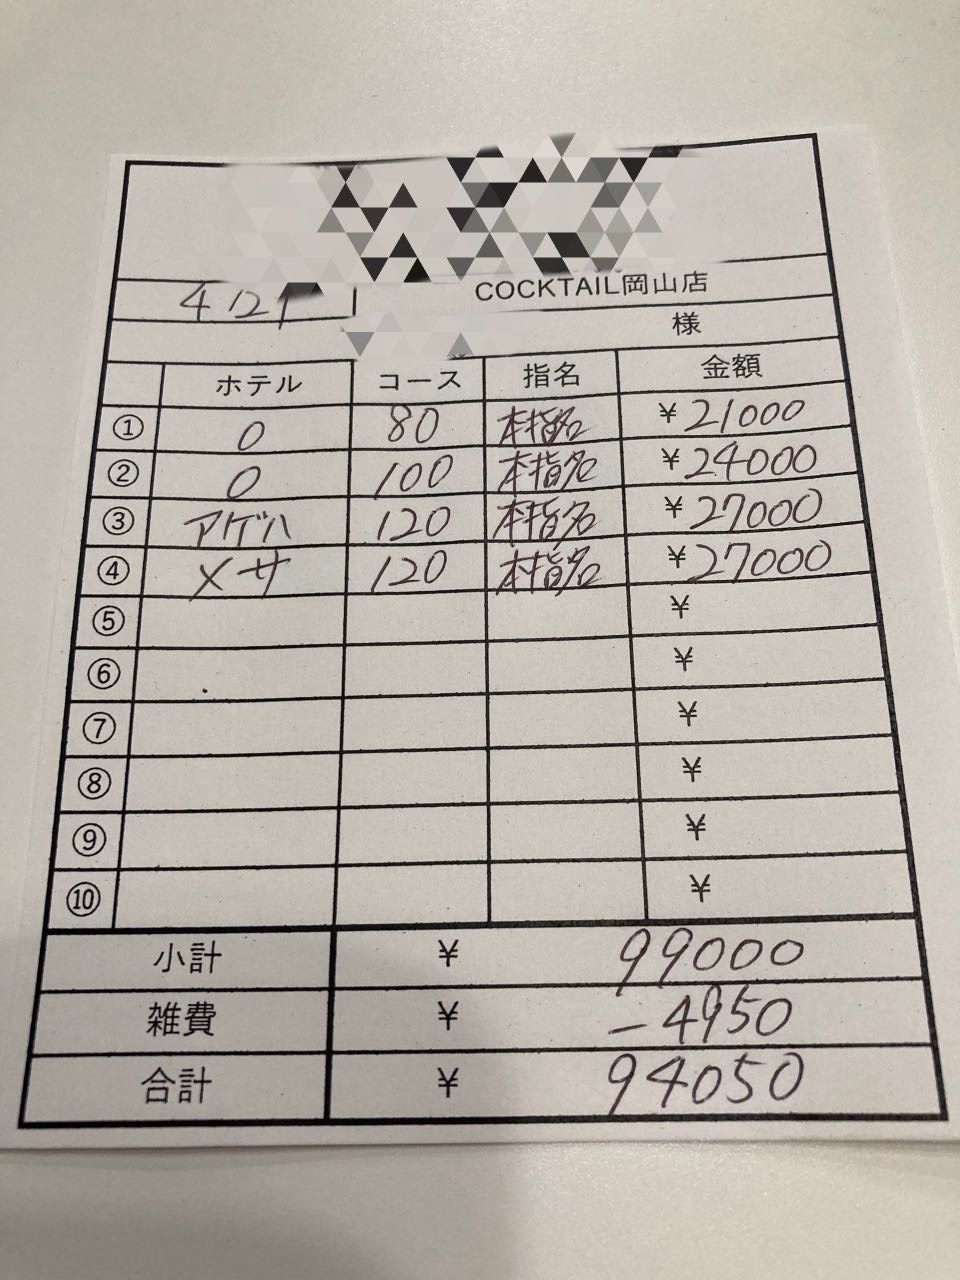 4/21
COCKTAIL岡山店
様
ホテル コース 指名 金額
① 0 80 本指名 ¥21000
② 0 100 本指名 ¥24000
③ アゲハ 120 本指名 ¥27000
④ メサ 120 本指名 ¥27000
⑤ ¥
⑥ ¥
⑦ ¥
⑧ ¥
⑨ ¥
⑩ ¥
小計 ¥ 99000
雑費 ¥ -4950
合計 ¥ 94050